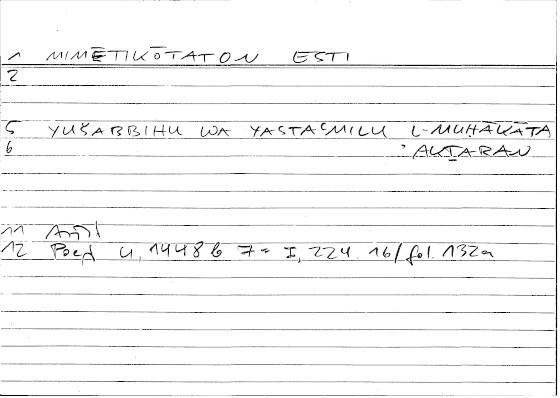 1 MIMĒTIKŌTATON ESTI
2
5 YUŠABBIHU WA YASTAʿMILU L-MUḤĀKĀTA
6 ʾAKṮARAN
11 Arist
12 Poet 4, 1448 b 7 = I, 224.16/fol. 132a